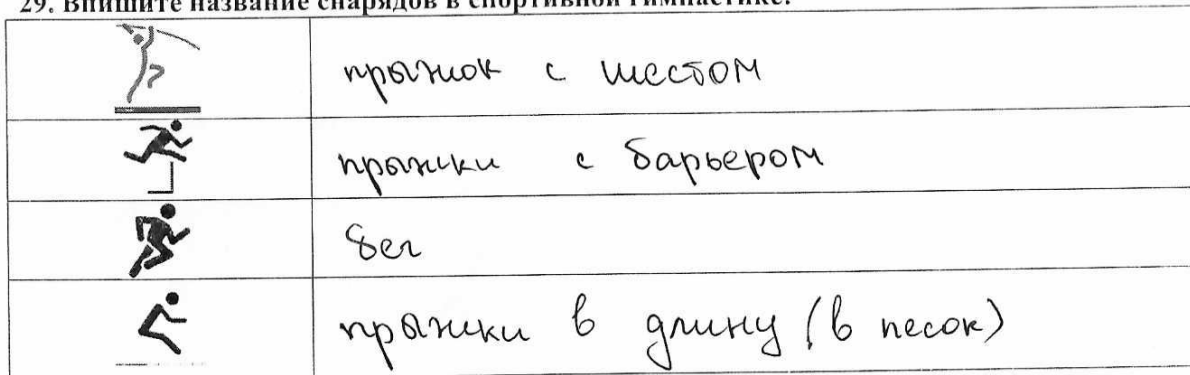 29. Впишите название снарядов в спортивной гимнастике.
прыжок с шестом
прыжки с барьером
бег
прыжки в длину (в песок)